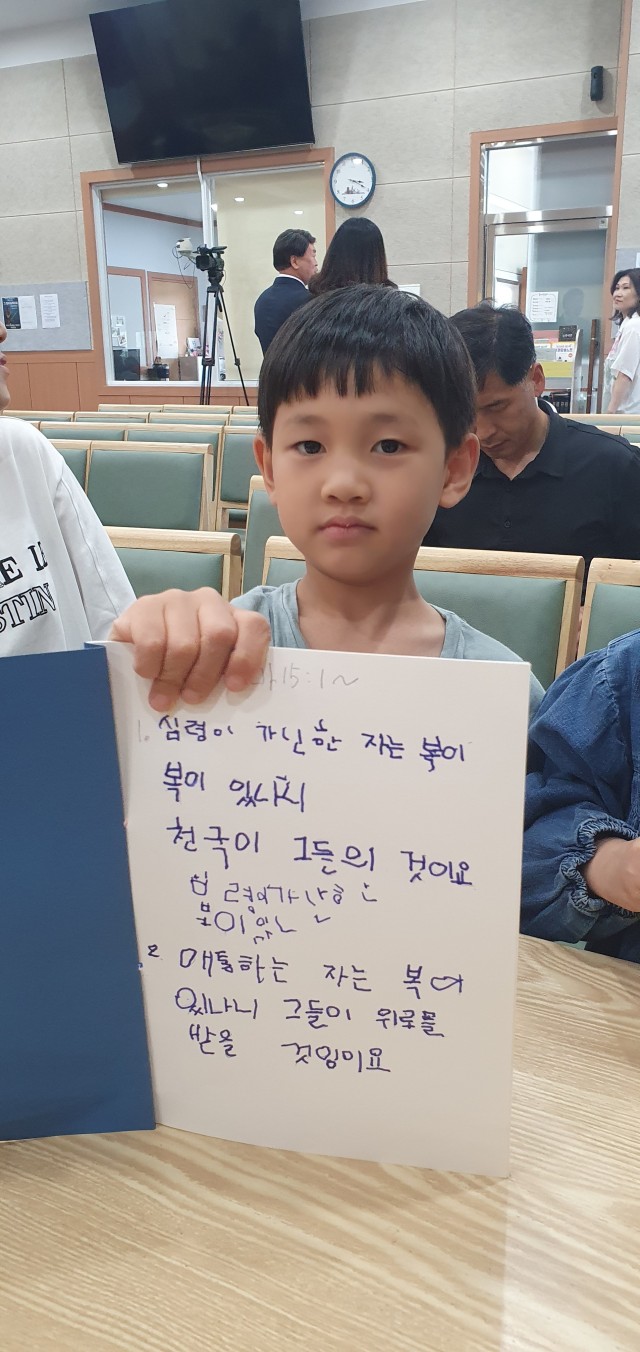 15:1~
1. 심령이 가난한 자는 복이
복이 있나니
천국이 그들의 것이요
심령이가난한
복이있
2 애통하는 자는 복이
있나니 그들이 위로를
받을 것임이요